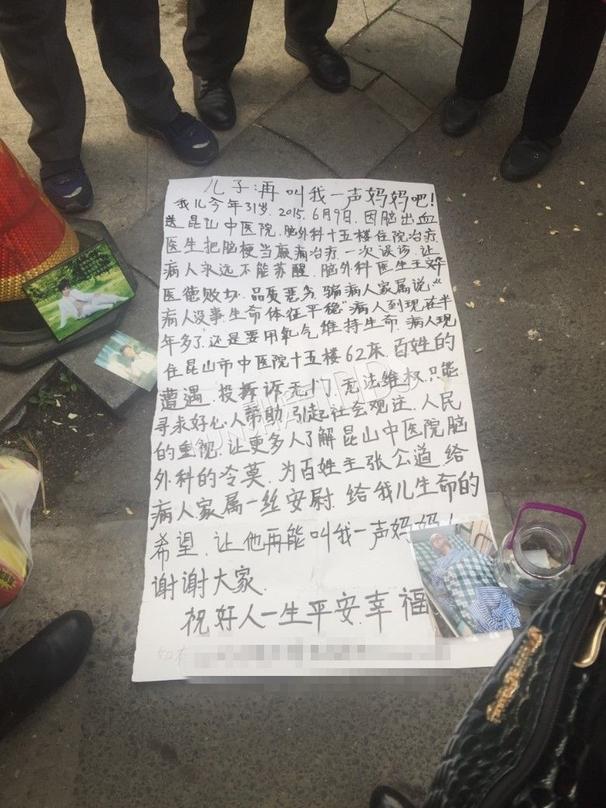 儿子再叫我一声妈妈吧!
我儿今年31岁.2015.6月9日.因脑出血
送昆山中医院.脑外科十五楼住院治疗.
医生把脑梗当癫痫治疗.一次误诊.让
病人永远不能苏醒.脑外科医生王安
医德败坏.品质恶劣.骗病人家属说"
病人没事生命体征平稳.病人到现在半
年多了.还是要用氧气维持生命.病人现
住昆山市中医院十五楼62床.百姓的
遭遇.投拆诉无门.无法维权.只能
寻求好心人帮助.引起社会观注.人民
的重视.让更多人了解昆山中医院脑
外科的冷莫.为百姓主张公道.给
病人家属一丝安尉.给我儿生命的
希望.让他再能叫我一声妈妈!
谢谢大家.
祝好人一生平安.幸福